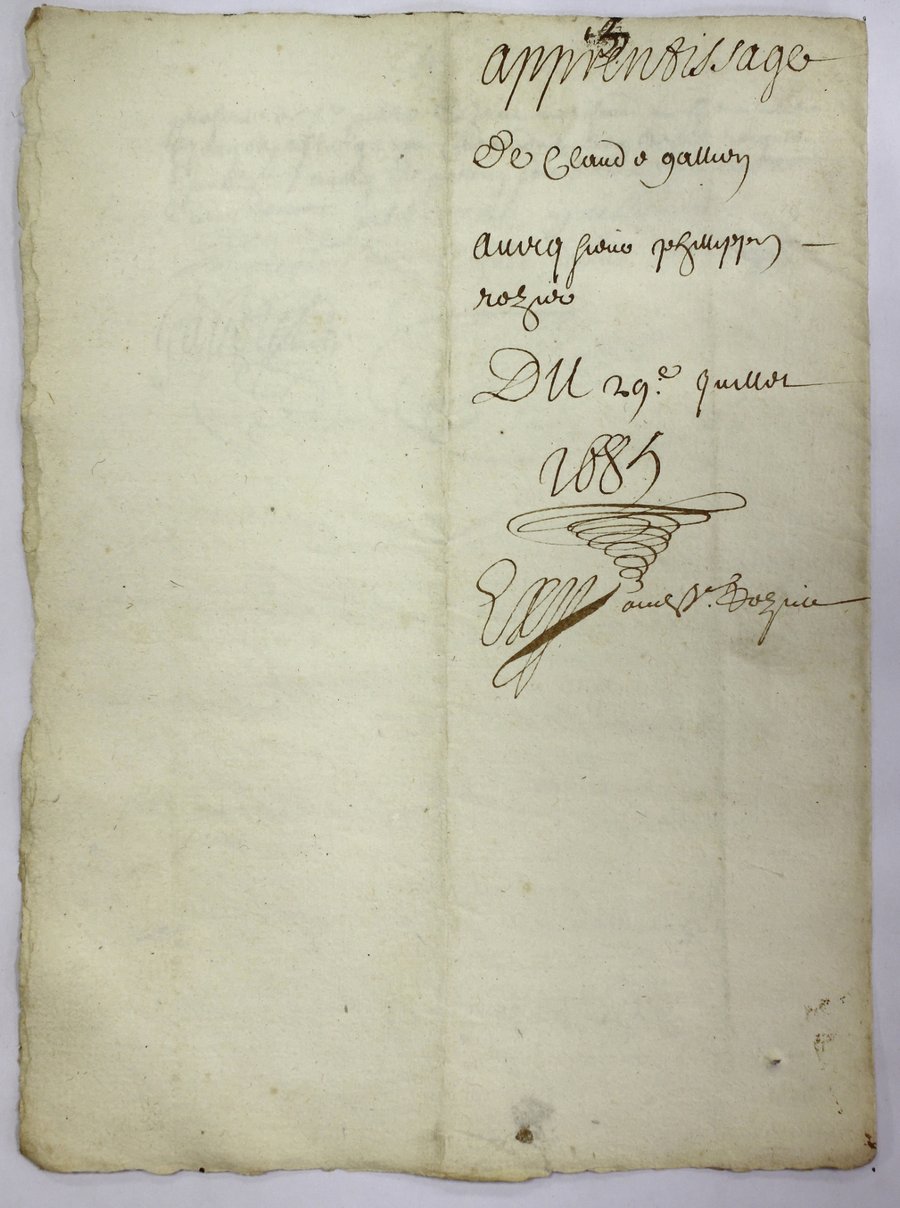 apprentissage
De Claude gallien
avecq sieur phillippe
rozier
DU 29.e Juillet
1685
Exp audt Sr. Rozier